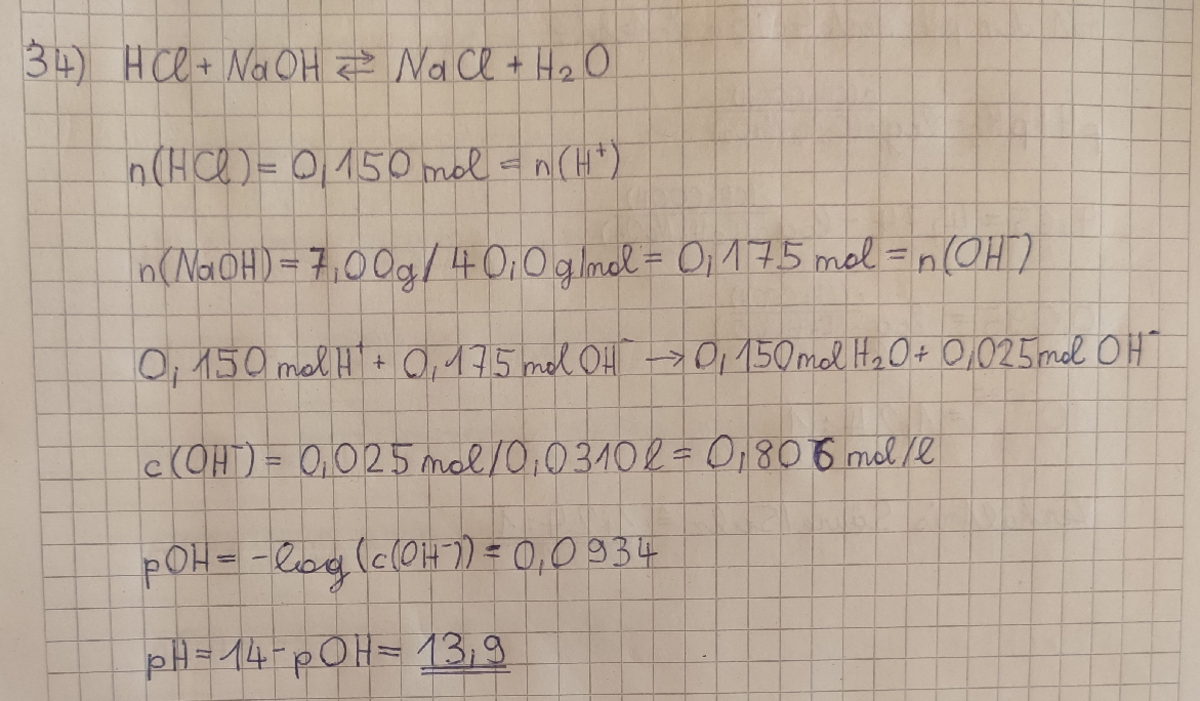 34) HCl + NaOH ⇄ NaCl + H₂O
n(HCl) = 0,150 mol = n(H⁺)
n(NaOH) = 7,00g / 40,0 g/mol = 0,175 mol = n(OH⁻)
0,150 mol H⁺ + 0,175 mol OH⁻ → 0,150 mol H₂O + 0,025 mol OH⁻
c(OH⁻) = 0,025 mol/0,0310 l = 0,806 mol/l
pOH = -log(c(OH⁻)) = 0,0934
pH = 14 - pOH = 13,9